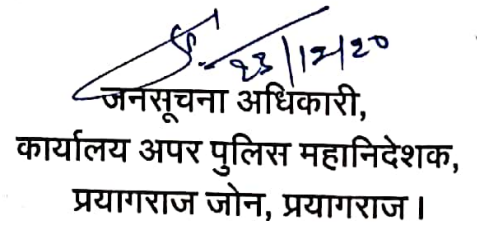 23/12/20
जनसूचना अधिकारी,
कार्यालय अपर पुलिस महानिदेशक,
प्रयागराज जोन, प्रयागराज।